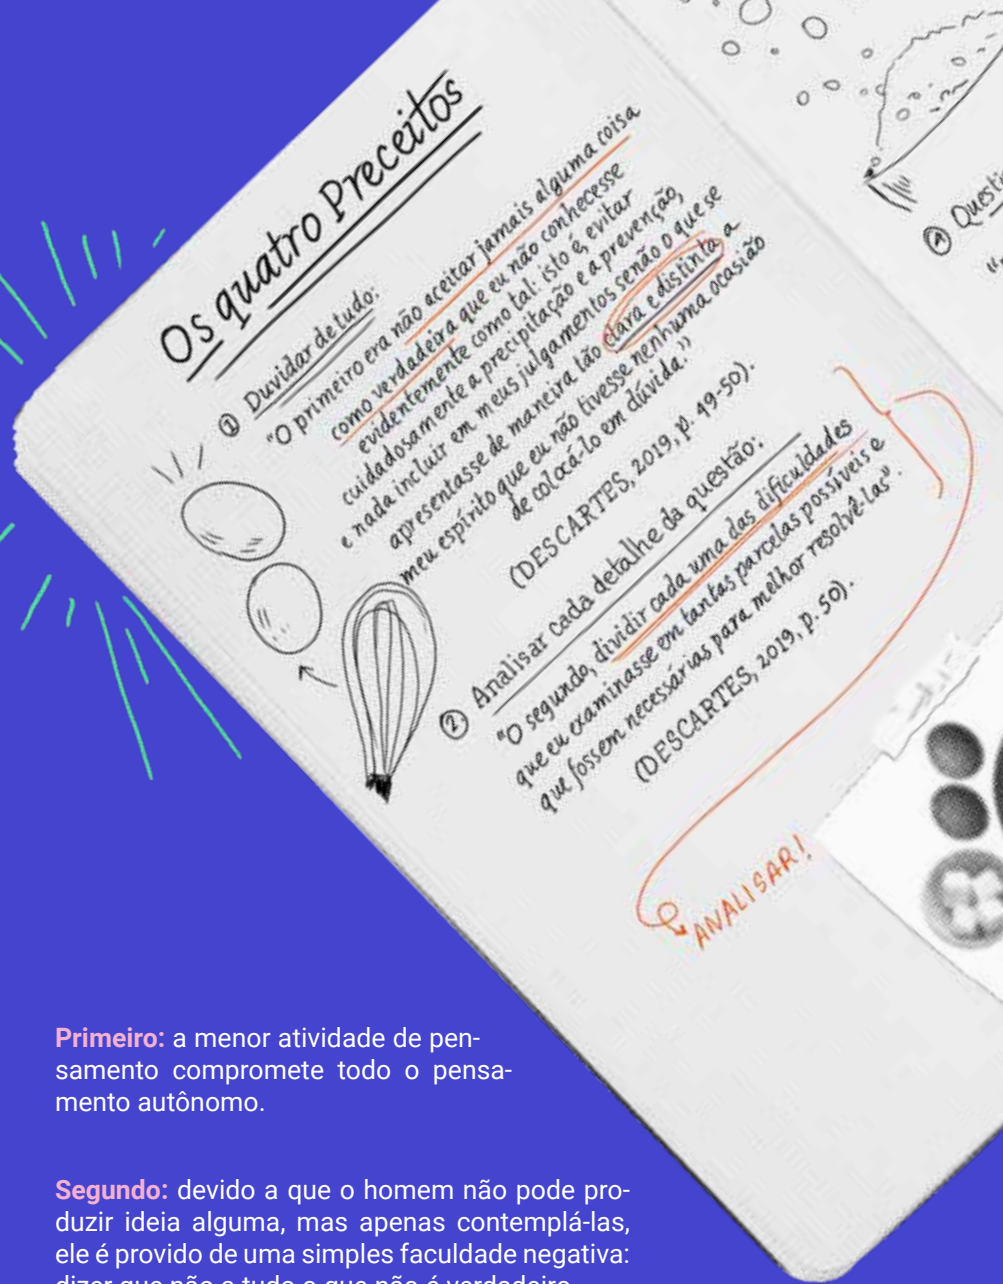 Os quatro Preceitos
① Duvidar de tudo:
"O primeiro era não aceitar jamais alguma coisa
como verdadeira que eu não conhecesse
evidentemente como tal: isto é, evitar
cuidadosamente a precipitação e a prevenção,
e nada incluir em meus julgamentos senão o que se
apresentasse de maneira tão clara e distinta a
meu espírito que eu não tivesse nenhuma ocasião
de colocá-lo em dúvida."
(DESCARTES, 2019, p. 49-50).
② Analisar cada detalhe da questão:
"O segundo, dividir cada uma das dificuldades
que eu examinasse em tantas parcelas possíveis e
que fossem necessárias para melhor resolvê-las".
(DESCARTES, 2019, p. 50).
ANALISAR!
Primeiro: a menor atividade de pen-
samento compromete todo o pensa-
mento autônomo.
Segundo: devido a que o homem não pode pro-
duzir ideia alguma, mas apenas contemplá-las,
ele é provido de uma simples faculdade negativa:
dizer que não a tudo o que não é verdadeiro